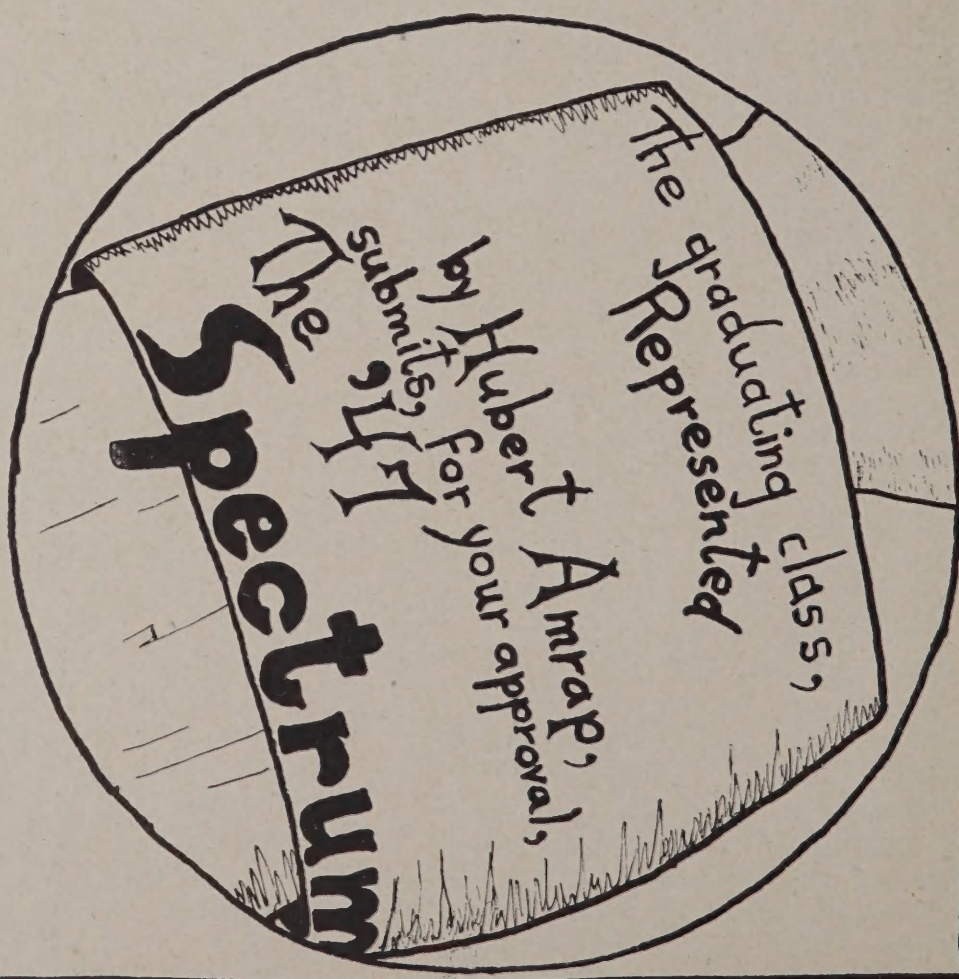 The graduating class,
Represented
by Hubert Amrap,
submits, for your approval,
The '47
Spectrum